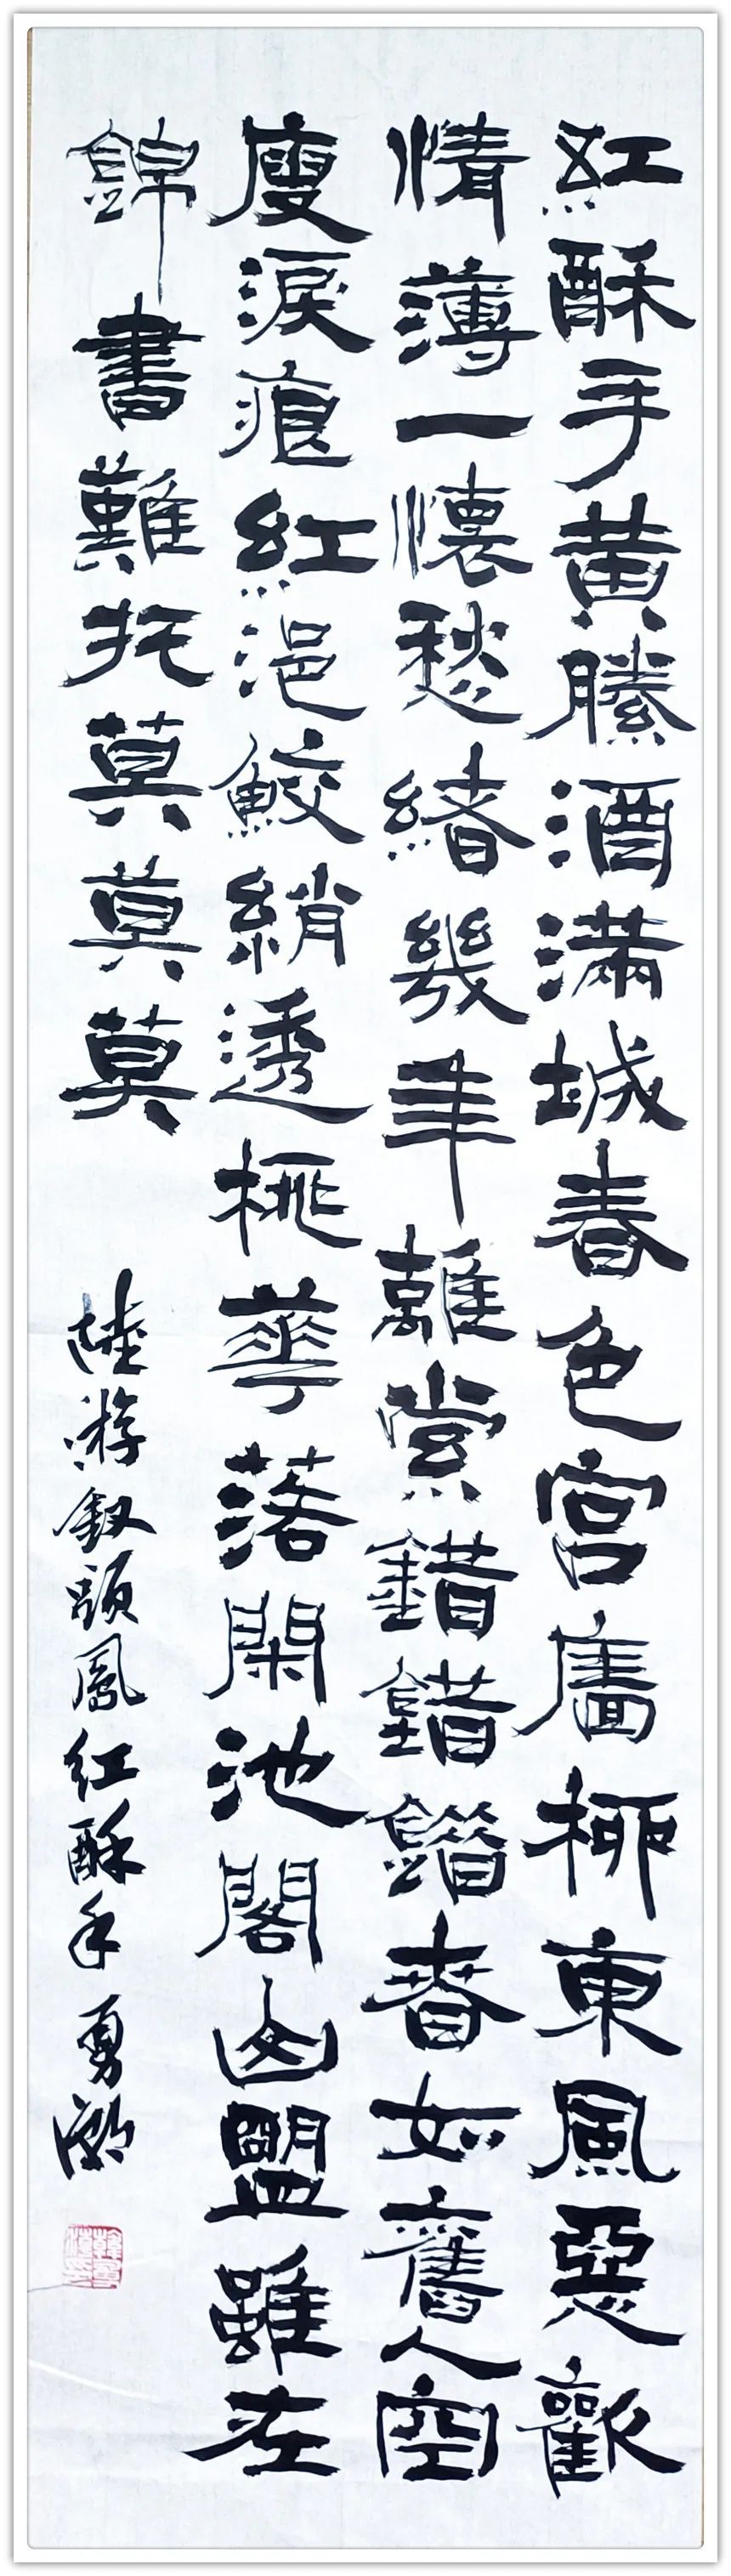 紅酥手黃縢酒滿城春色宮廧柳東風惡歡
情薄一懷愁緒幾年離索錯錯錯春如舊人空
瘦淚痕紅浥鮫綃透桃華落閑池閣山盟雖在
錦書難托莫莫莫 陸游釵頭鳳紅酥手 勇